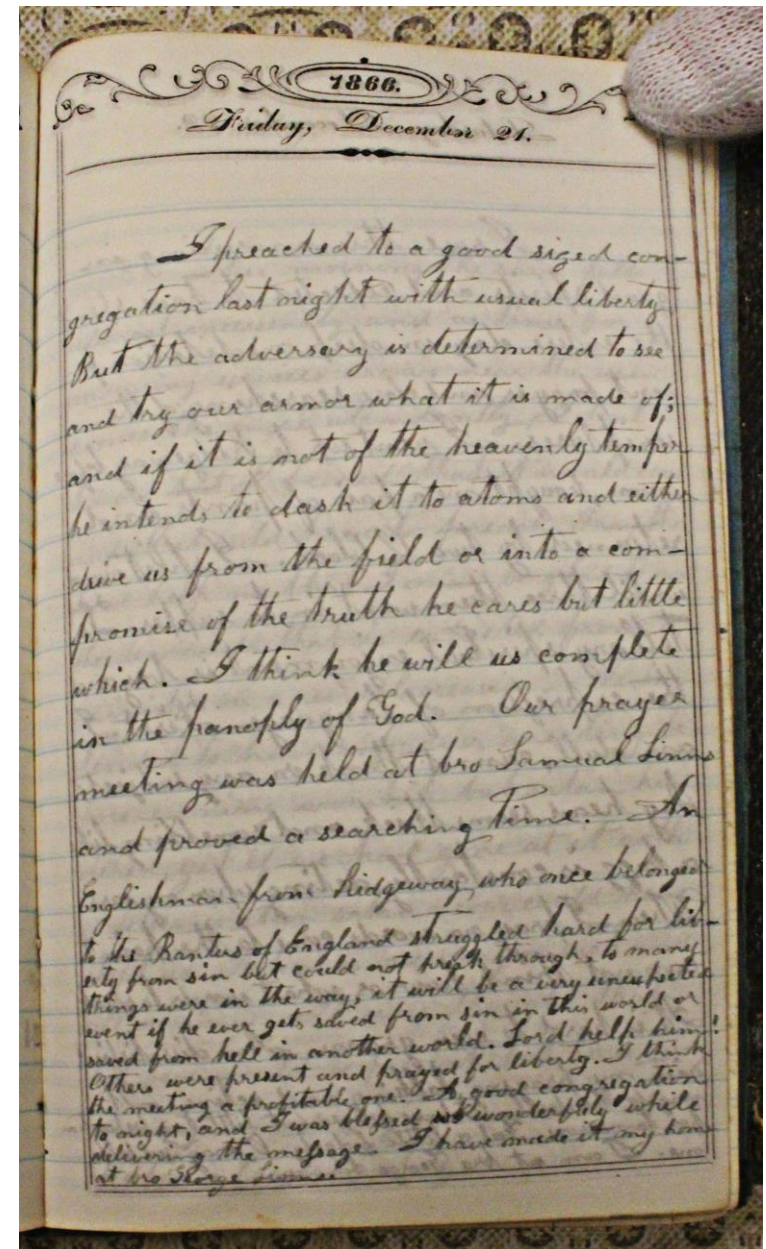 1866.
Friday, December 21.
I preached to a good sized con-
gregation last night with usual liberty
But the adversary is determined to see
and try our armor what it is made of;
and if it is not of the heavenly temper
he intends to dash it to atoms and either
drive us from the field or into a com-
promise of the truth he cares but little
which. I think he will us complete
in the panoply of God. Our prayer
meeting was held at bro Samual Linns
and proved a searching time. An
Englishman from Ridgeway, who once belonged
to the Ranters of England struggled hard for lib-
erty from sin but could not break through, to many
things were in the way, it will be a very unexpected
event if he ever gets saved from sin in this world or
saved from hell in another world. Lord help him!
Others were present and prayed for liberty. I think
the meeting a profitable one. A good congregation
to night, and I was blessed wonderfuly while
delivering the message. I have made it my home
at bro George